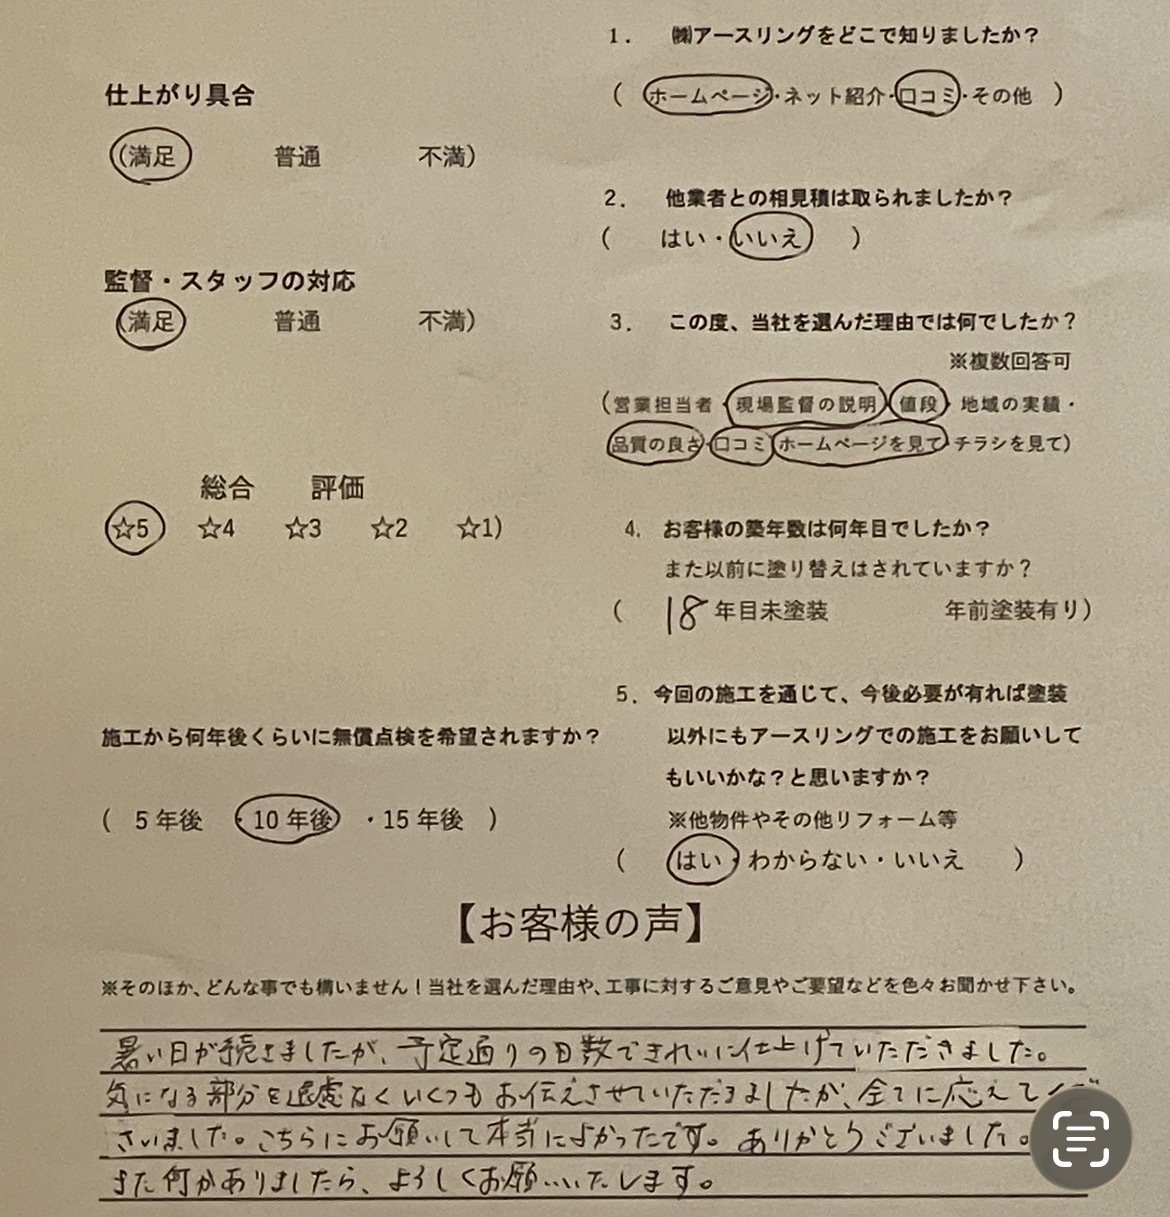 仕上がり具合
(満足　普通　不満)
監督・スタッフの対応
(満足　普通　不満)
総合　評価
☆5　☆4　☆3　☆2　☆1)
施工から何年後くらいに無償点検を希望されますか？
(　5年後　・10年後　・15年後　)
1．　㈱アースリングをどこで知りましたか？
(　ホームページ・ネット紹介・口コミ・その他　)
2．　他業者との相見積は取られましたか？
(　はい・いいえ　)
3．　この度、当社を選んだ理由では何でしたか？
※複数回答可
(営業担当者・現場監督の説明・値段・地域の実績・
品質の良さ・口コミ・ホームページを見て・チラシを見て)
4.　お客様の築年数は何年目でしたか？
また以前に塗り替えはされていますか？
(　18年目未塗装　年前塗装有り)
5．今回の施工を通じて、今後必要が有れば塗装
以外にもアースリングでの施工をお願いして
もいいかな？と思いますか？
※他物件やその他リフォーム等
(　はい・わからない・いいえ　)
【お客様の声】
※そのほか、どんな事でも構いません！当社を選んだ理由や、工事に対するご意見やご要望などを色々お聞かせ下さい。
暑い日が続きましたが、予定通りの日数できれいに仕上げていただきました。
気になる部分を遠慮なくいくつもお伝えさせていただきましたが、全てに応えてくだ
さいました。こちらにお願いして本当によかったです。ありがとうございました。
また何かありましたら、よろしくお願いいたします。